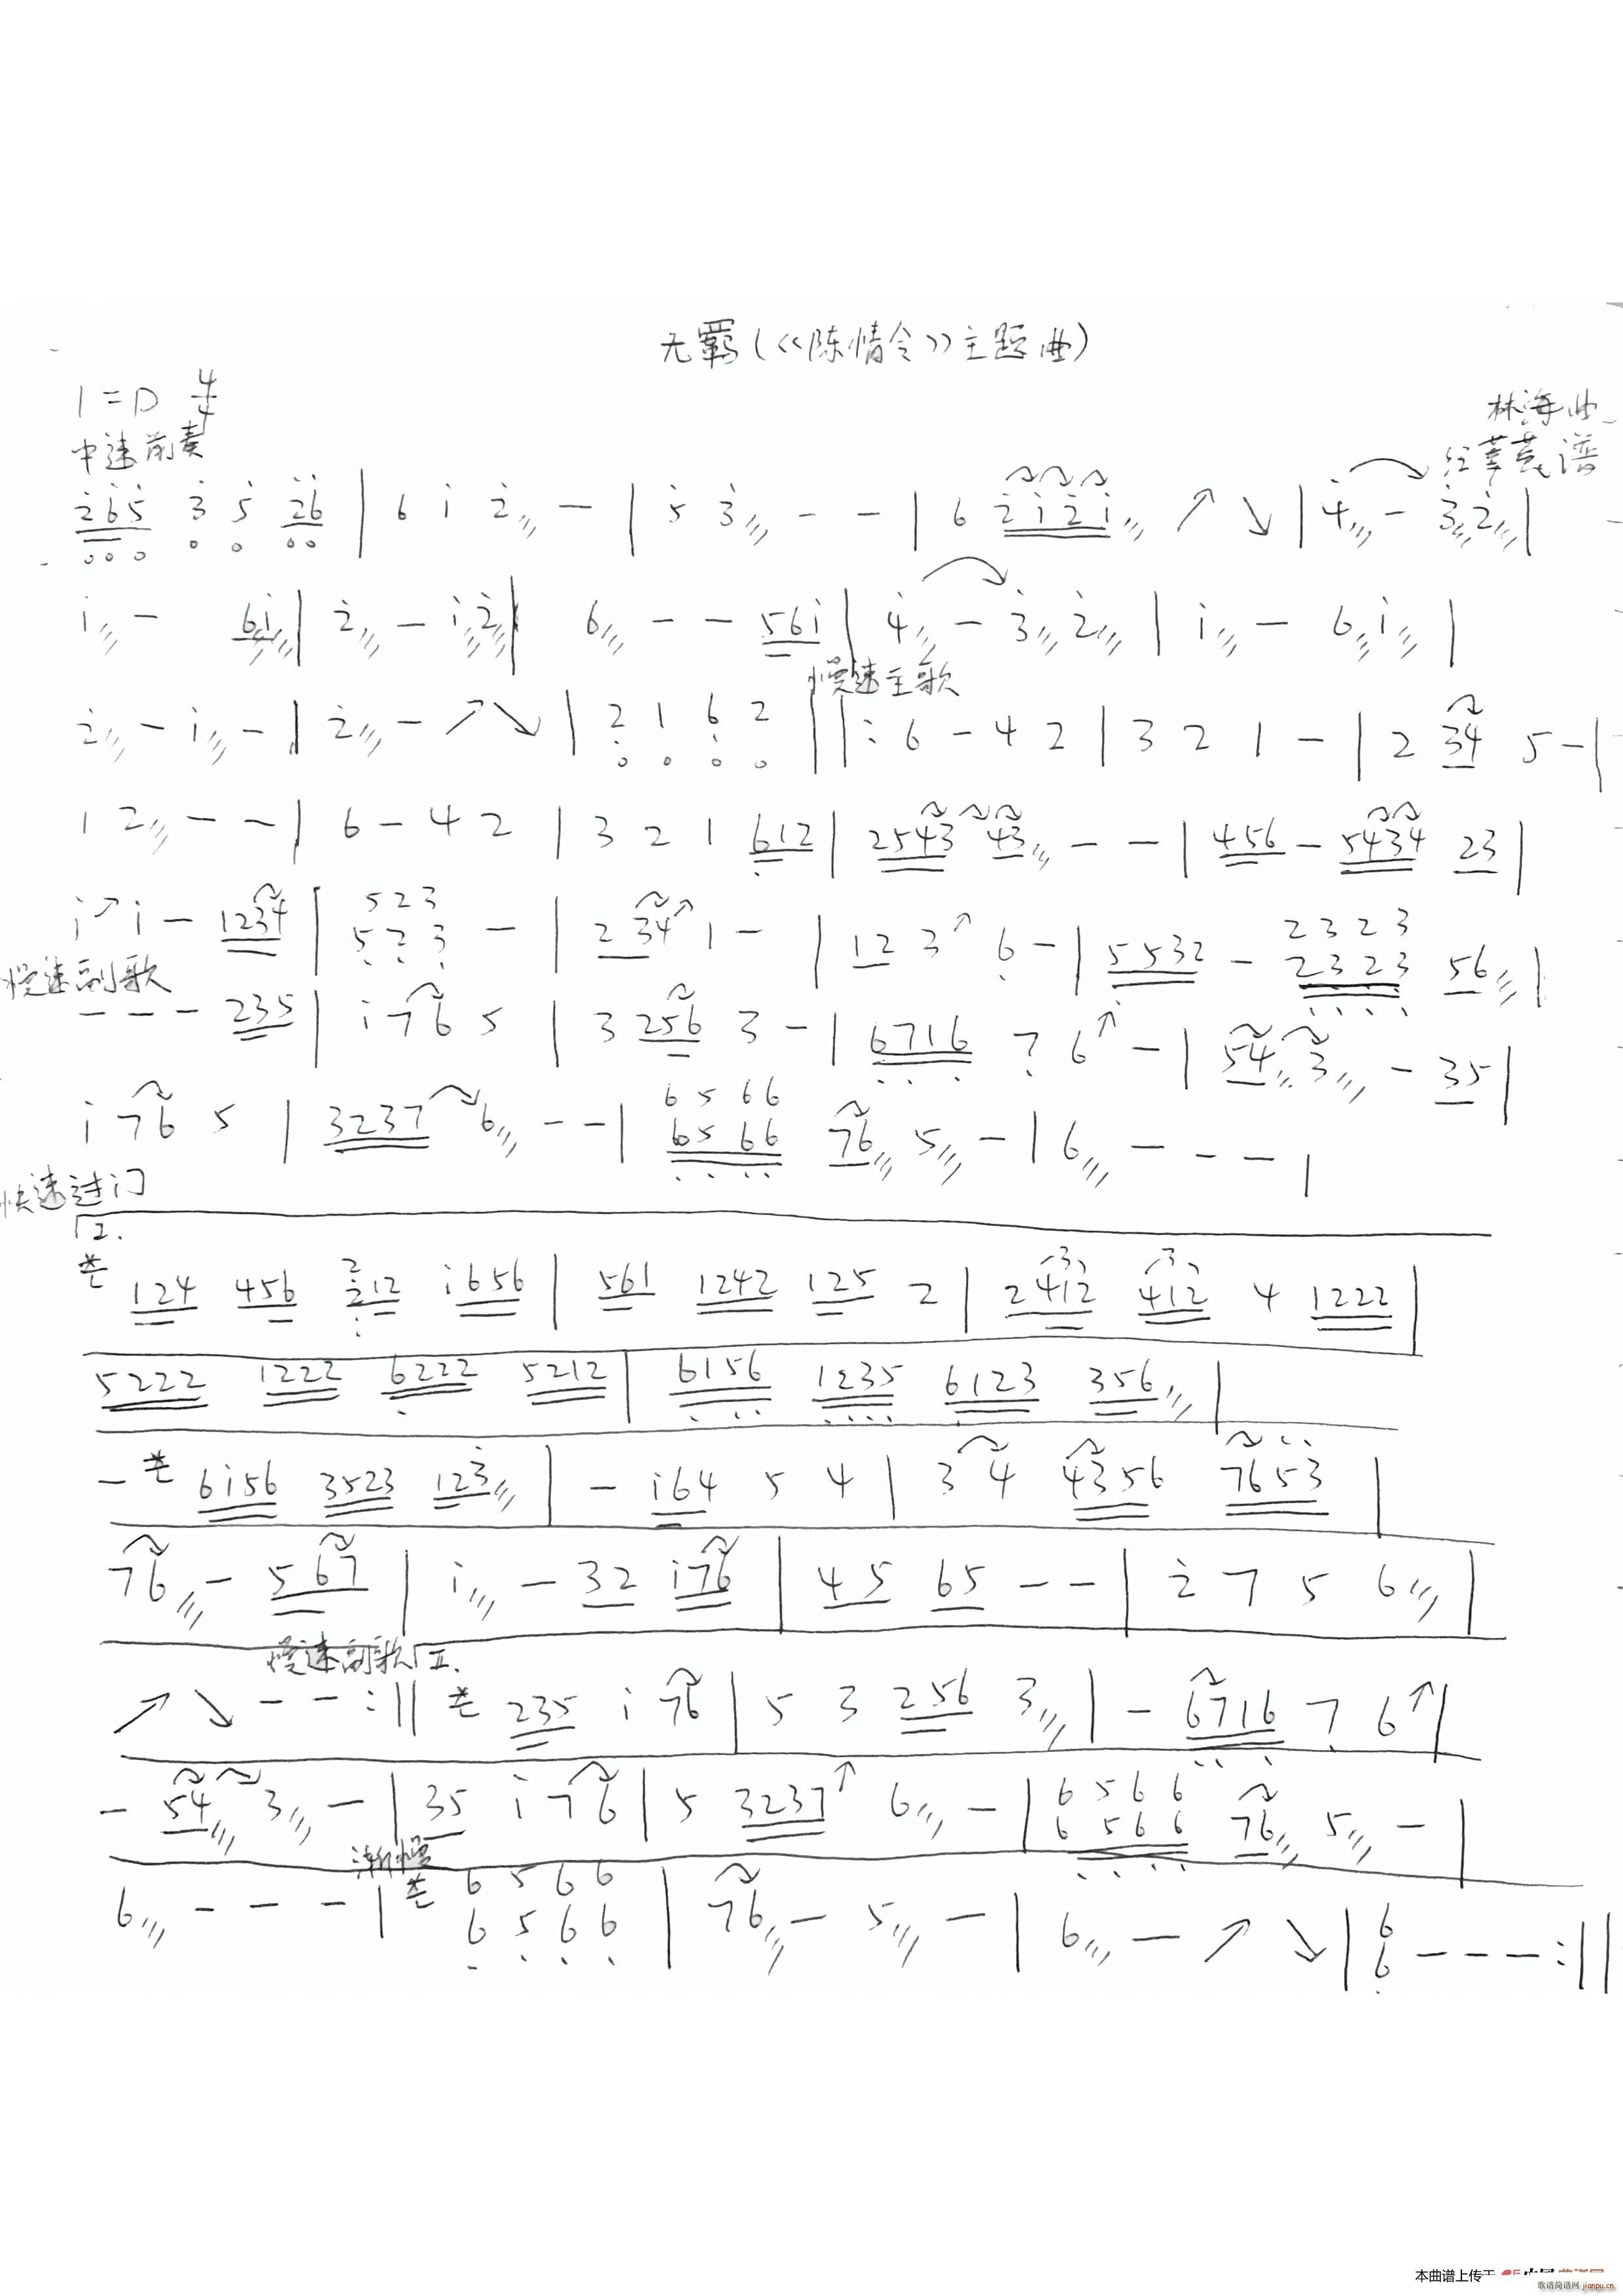 无羁(《陈情令》主题曲)
1=D 4/4
林海曲
中速前奏
谱
2̇6̇5̇ 3̇ 5̇ 2̇6̇ | 6 i 2̇ - | 5̇ 3̇ - - | 6 2̇i2̇i ↗ ↘ | 4̇ - 3̇2̇ |
i - 6i | 2̇ - i2̇ | 6 - - 56i | 4̇ - 3̇ 2̇ | i - 6 i |
慢速主歌
2̇ - i - | 2̇ - ↗ ↘ | 2 1 6 2 ||: 6 - 4 2 | 3 2 1 - | 2 34 5 - |
1 2 - - | 6 - 4 2 | 3 2 1 612 | 2543 43 - - | 456 - 5434 23 |
5 2 3
2 3 2 3
i ↗ i - 1234 | 5 2 3 - | 2 34 ↗ 1 - | 12 3 ↗ 6 - | 5532 - 2323 56 |
慢速副歌
- - - 235 | i 76 5 | 3 256 3 - | 6716 7 6 ↗ - | 54 3 - 35 |
6 5 6 6
i 76 5 | 3237 6 - - | 6566 76 5 - | 6 - - - |
快速过门
2.
124 456 2̇12 i656 | 561 1242 125 2 | 2412 412 4 1222 |
5222 1222 6222 5212 | 6156 1235 6123 356 |
- 6i56 3523 123̇ | - i64 5 4 | 3 4 4356 7653 |
76 - 567 | i - 32 i76 | 45 65 - - | 2̇ 7 5 6 |
慢速副歌 II.
↗ ↘ - - :|| 235 i 76 | 5 3 256 3 | - 6716 7 6 ↗ |
6 5 6 6
- 54 3 - | 35 i 76 | 5 3237 ↗ 6 - | 6 566 76 5 - |
渐慢
6 5 6 6
6 - - - | 6 5 6 6 | 76 - 5 - | 6 - ↗ ↘ | 6 - - - :||
6
本曲谱上传于
歌谱简谱网 jianpu.cn